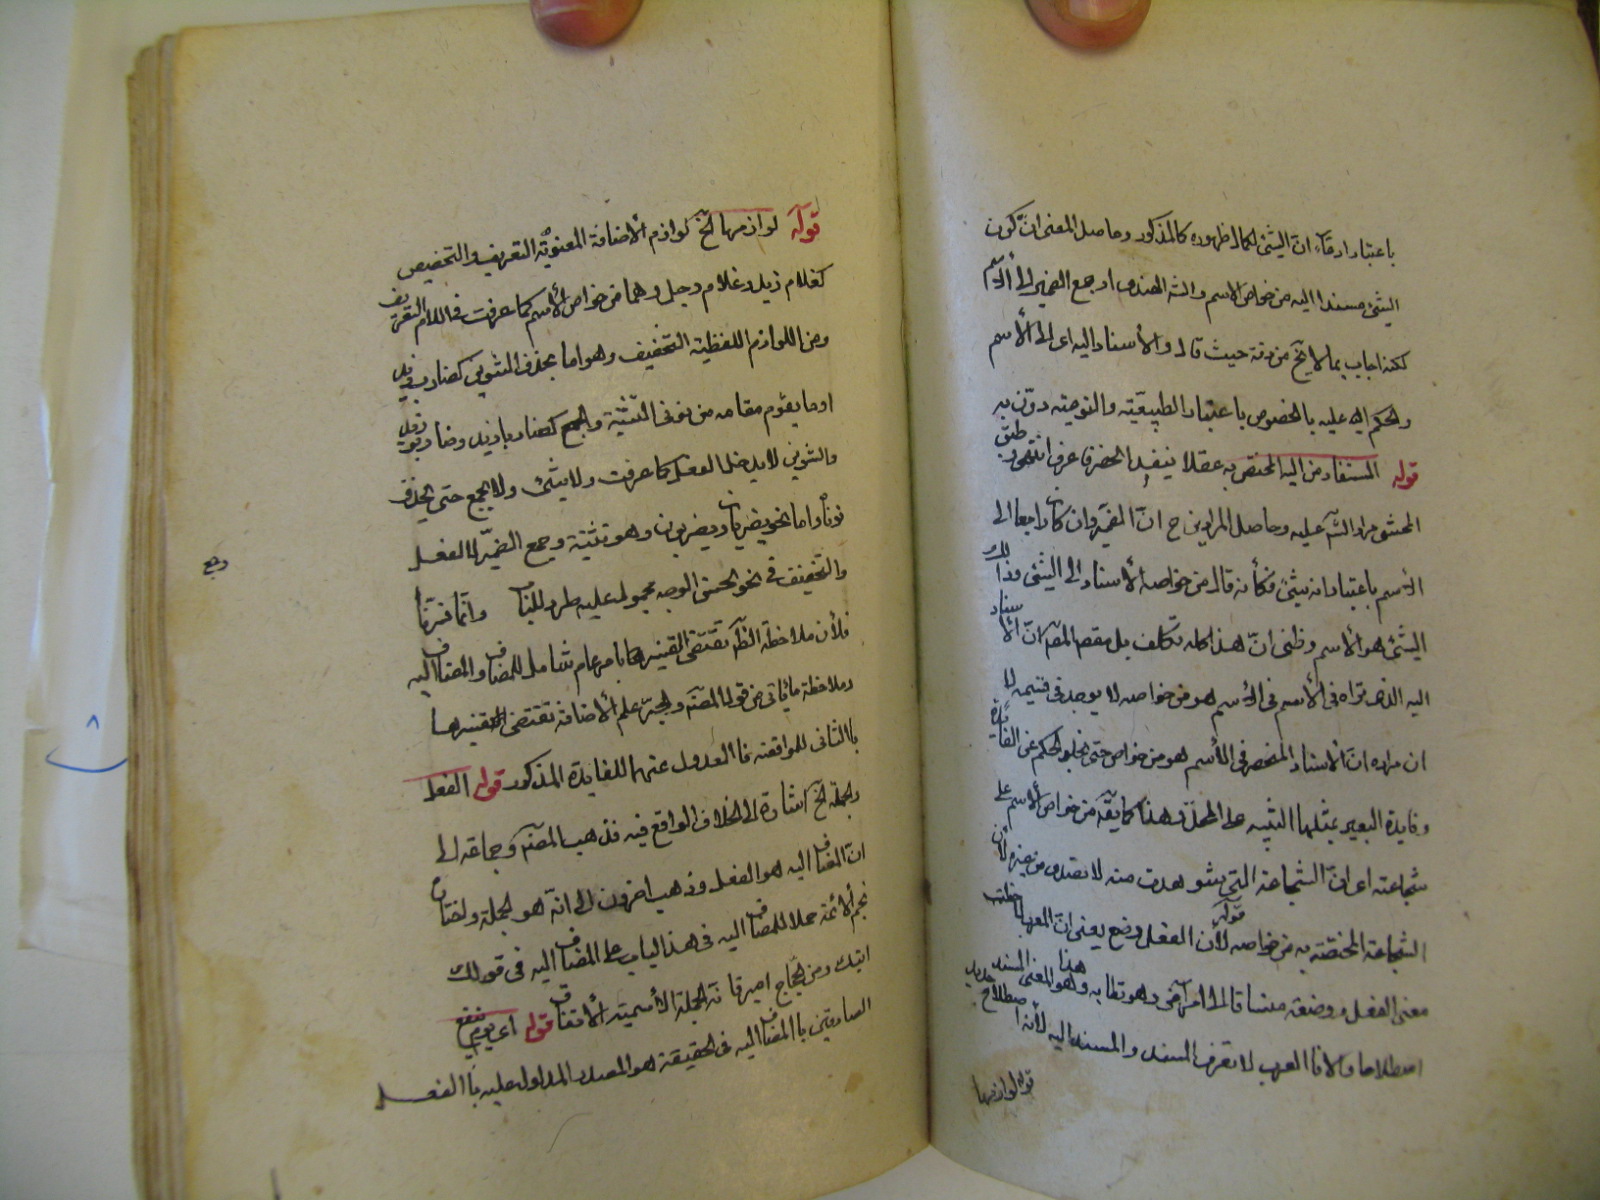 باعتبار ادعاء ان الشئ لكمال ظهوره كالمذكور وحاصل المعنى ان كون
الشئ مسندا اليه من خواص الاسم والشه الهندى ارجع الضمير الى الاسم
لكنه اجاب بما لا يخ من دقة حيث قال والاسناد اليه اى الى الاسم
والحكم اليه عليه بالخصوص باعتبار الطبيعة والنوعية دون
قوله المستفاد من اليه المختص به عقلا ينفيد الحصر عرفا انتهى
المحشى مراد الشه عليه وحاصل المرادين ح ان الضمير وان كان راجعا الى
الاسم باعتبار انه شئ فكأنه قال من خواصه الاسناد الى الشئ وذلك
الشئ هو الاسم وظنى ان هذا كله تكلف بل مقصد المص ان الاسناد
اليه الذى تراه فى الاسم فى الاسم هو من خواصه لا يوجد فى قسيمه لا
ان مراده ان الاسناد المنحصر فى الاسم هو من خواص حتى يخلو الحكم عن الفائدة
وفايدة التعبير بمثلها التنبيه على المحل وهذا كما يقه من خواص الاسم على
شجاعته اى ان الشجاعة التى شوهدت منه لا تصدر من غيره لان
الشجاعة المختصة به من خواصه قوله لان الفعل وضع يعنى ان العرب لما ختلف
معنى الفعل ووضعه منسا قا الى امر آخر وهو تطا به وهو هذا المعنى المسند
اصطلاحا والا فا العرب لا تعرف المسند والمسند اليه لانه اصطلاح جديد
قوله لوازمها
قوله لوازمها الخ لوازم الاضافة المعنوية التعريف والتخصيص
كغلام زيد وغلام رجل وهما من خواص الاسم كما عرفت فى اللام التعريف
ومن اللوازم اللفظية التخفيف وهو اما بحذف التنوين كضارب زيد
او ما يقوم مقامه من نونى التثنية والجمع كضاربا زيد وضاربو زيد
والتنوين لا يدخل الفعل كما عرفت ولا يثنى ولا يجمع حتى يحذف
نونا واما نحو يضربان ويضربون وهو تثنية وجمع الضمير لا الفعل
والتخفيف فى نحو الحسن الوجه محمول عليه طرد للباب وانما فسرنا
فلأن ملاحظة النظر تقتضى التفسير هكا بامر عام شامل للمضاف والمضاف اليه
وملاحظة ما يأتى من قول المصه والجر علم الاضافة تقتضى التفسيرها
بالثانى للموافقة فما العدول عنها للفايدة المذكور قوله الفعل
والجملة الخ اشارة الى الخلاف الواقع فيه فذهب المصه وجماعة الى
ان المضاف اليه هو الفعل وذهب اخرون الى انه هو الجملة واختان
نجم الائمة حملا للمضاف اليه فى هذا الباب على المضاف اليه فى قولك
اتيك ومن الحجاج امير فانه الجملة الاسمية الاتفاق قوله اى يوم ينفع
الصادقين با المضاف اليه فى الحقيقة هو المصدر المدلول عليه با الفعل